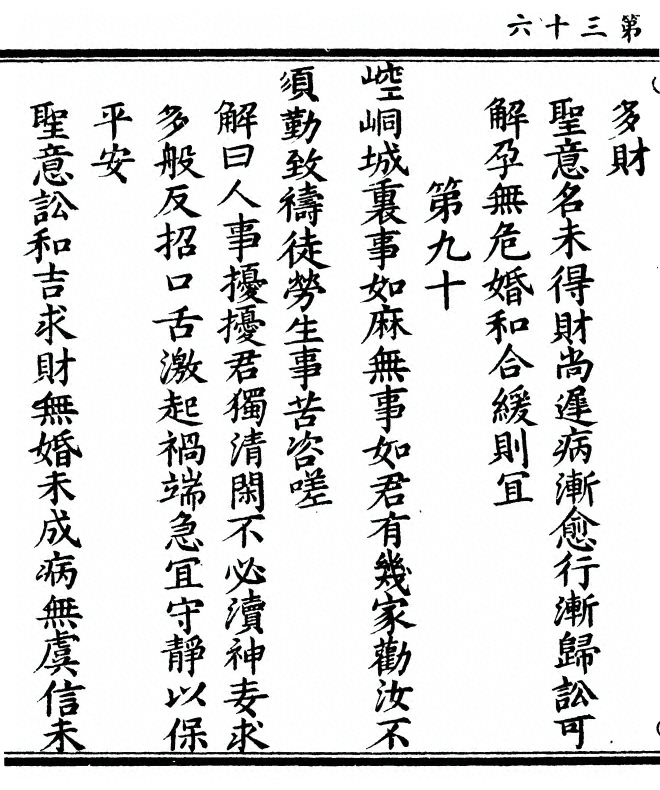 第三十六
多財
聖意名未得財尚遲病漸愈行漸歸訟可
解孕無危婚和合緩則冝
第九十
崆峒城裏事如麻無事如君有幾家勸汝不
須勤致禱徒勞生事苦咨嗟
解曰人事擾擾君獨清閑不必瀆神妄求
多般反招口舌激起禍端急冝守靜以保
平安
聖意訟和吉求財無婚未成病無虞信未